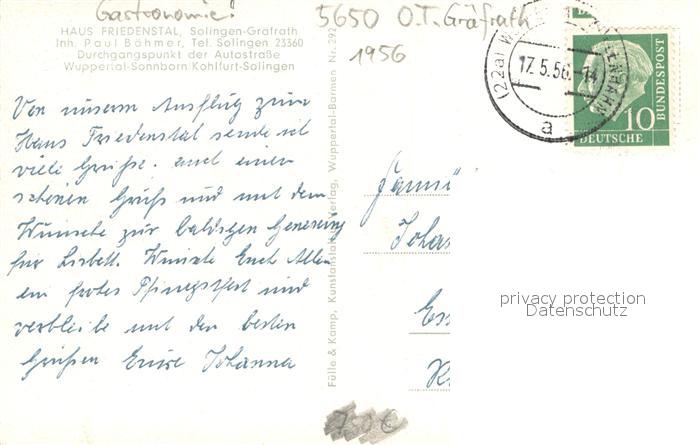 Gastronomie!
5650 O.T. Gräfrath
1956
HAUS FRIEDENSTAL, Solingen-Gräfrath
Inh. Paul Böhmer, Tel. Solingen 23360
Durchgangspunkt der Autostraße
Wuppertal-Sonnborn Kohlfurt-Solingen
(22a) W
17.5.56.-14
a
10
DEUTSCHE
BUNDESPOST
Von unserm Ausflug zum
Haus Friedenstal sende ich
viele Grüße. auch einen
schönen Gruß und mit dem
Wunsche zur baldigen Genesung
für Lisbett. Wünsche Euch Allen
ein frohes Pfingstfest und
verbleibe mit den besten
Grüßen Eure Johanna
Fülle & Kamp, Kunstanstalt u. Verlag, Wuppertal-Barmen Nr. 292
Fami
Joha
Ess
privacy protection
Datenschutz